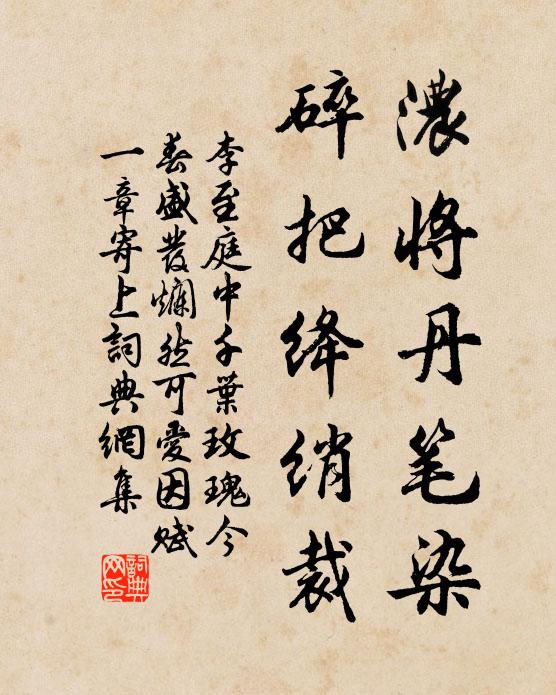 濃将丹笔染
碎把绛绡裁
李至庭中千葉玫瑰今
春盛發爛然可愛因赋
一章寄上詞典網集
詞典
网印